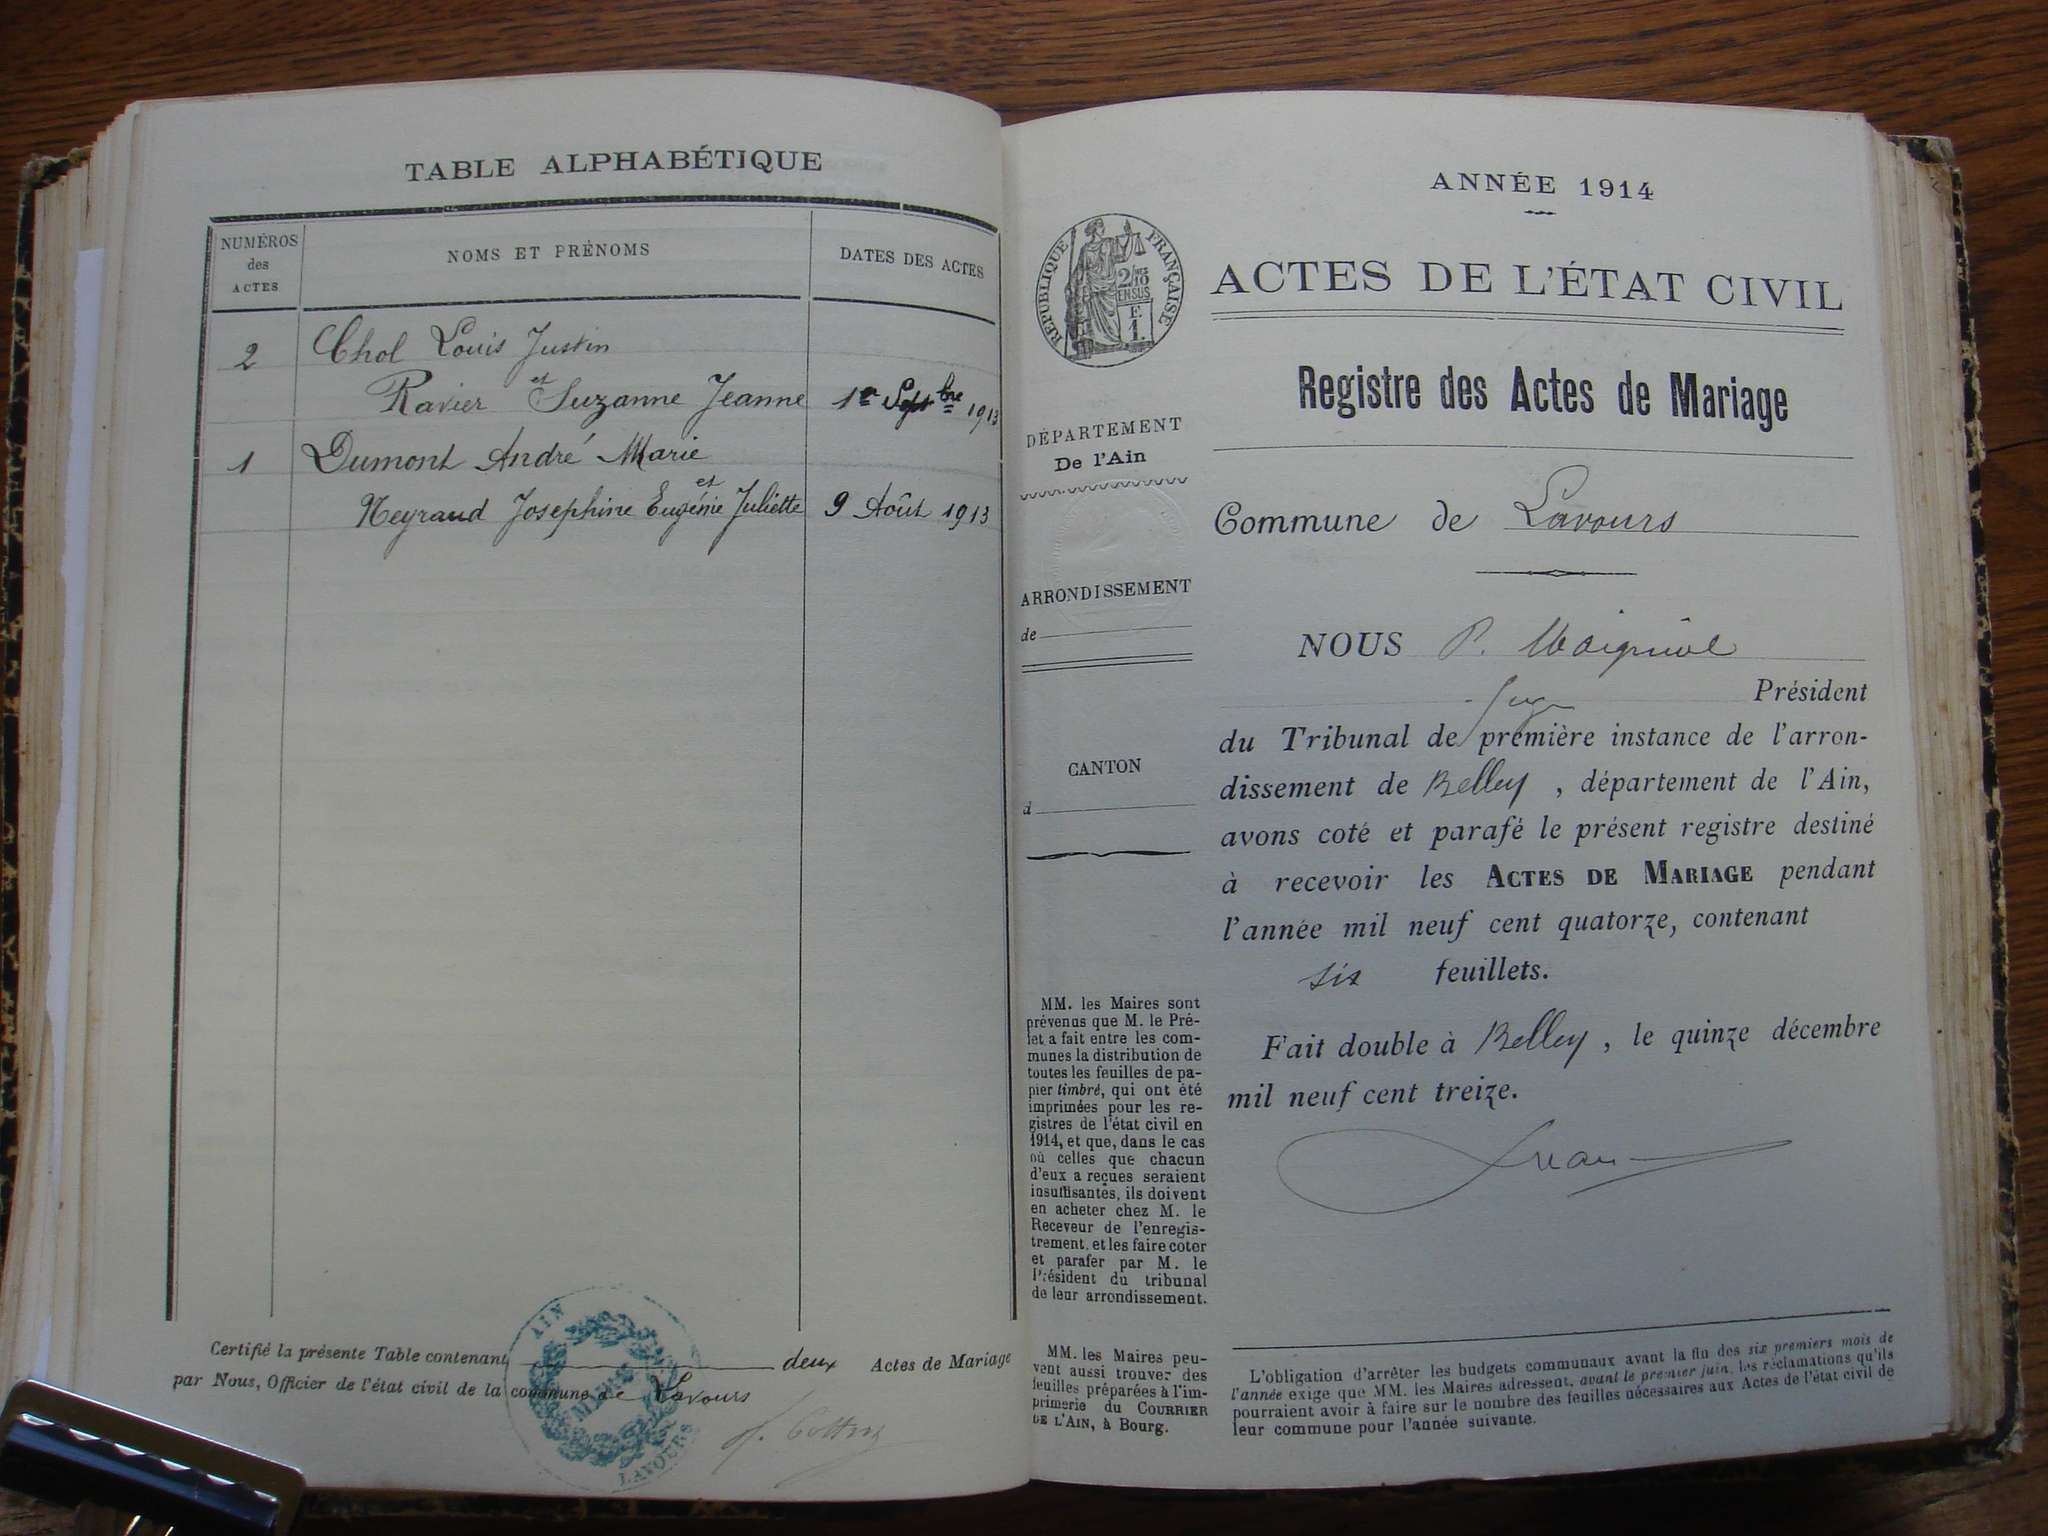 TABLE ALPHABÉTIQUE
NUMÉROS
des
ACTES
NOMS ET PRÉNOMS
DATES DES ACTES
2 Chol Louis Justin
et
Ravier Suzanne Jeanne 1er Septbre 1913
1 Dumont André Marie
et
Neyraud Josephine Eugénie Juliette 9 Août 1913
Certifié la présente Table contenant deux Actes de Mariage
par Nous, Officier de l'état civil de la commune de Lavours
AIN
MAIRIE
LAVOURS
ANNÉE 1914
RÉPUBLIQUE FRANÇAISE
2/10
EN SUS
F.
1.
ACTES DE L'ÉTAT CIVIL
Registre des Actes de Mariage
DÉPARTEMENT
De l'Ain
Commune de Lavours
ARRONDISSEMENT
de
CANTON
d
NOUS P.
Juge Président
du Tribunal de première instance de l'arron-
dissement de Belley, département de l'Ain,
avons coté et parafé le présent registre destiné
à recevoir les ACTES DE MARIAGE pendant
l'année mil neuf cent quatorze, contenant
six feuillets.
Fait double à Belley, le quinze décembre
mil neuf cent treize.
MM. les Maires sont
prévenus que M. le Pré-
fet a fait entre les com-
munes la distribution de
toutes les feuilles de pa-
pier timbré, qui ont été
imprimées pour les re-
gistres de l'état civil en
1914, et que, dans le cas
où celles que chacun
d'eux a reçues seraient
insuffisantes, ils doivent
en acheter chez M. le
Receveur de l'enregis-
trement, et les faire coter
et parafer par M. le
Président du tribunal
de leur arrondissement.
MM. les Maires peu-
vent aussi trouver des
feuilles préparées à l'im-
primerie du COURRIER
DE L'AIN, à Bourg.
L'obligation d'arrêter les budgets communaux avant la fin des six premiers mois de
l'année exige que MM. les Maires adressent, avant le premier juin, les réclamations qu'ils
pourraient avoir à faire sur le nombre des feuilles nécessaires aux Actes de l'état civil de
leur commune pour l'année suivante.